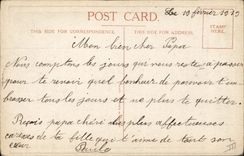 POST CARD.
le 10 février 1919
THIS SIDE FOR CORRESPONDENCE
THIS SIDE FOR ADDRESS.
STAMP
HERE
Mon bien cher Papa
Nous comptons les jours que nous reste à passer
pour te revoir quel bonheur de pouvoir t'em
brasser tous les jours et ne plus te quitter.
Reçois papa chéri les plus affectueuses
caresses de ta fille qui t'aime de tout son
cœur
Paula